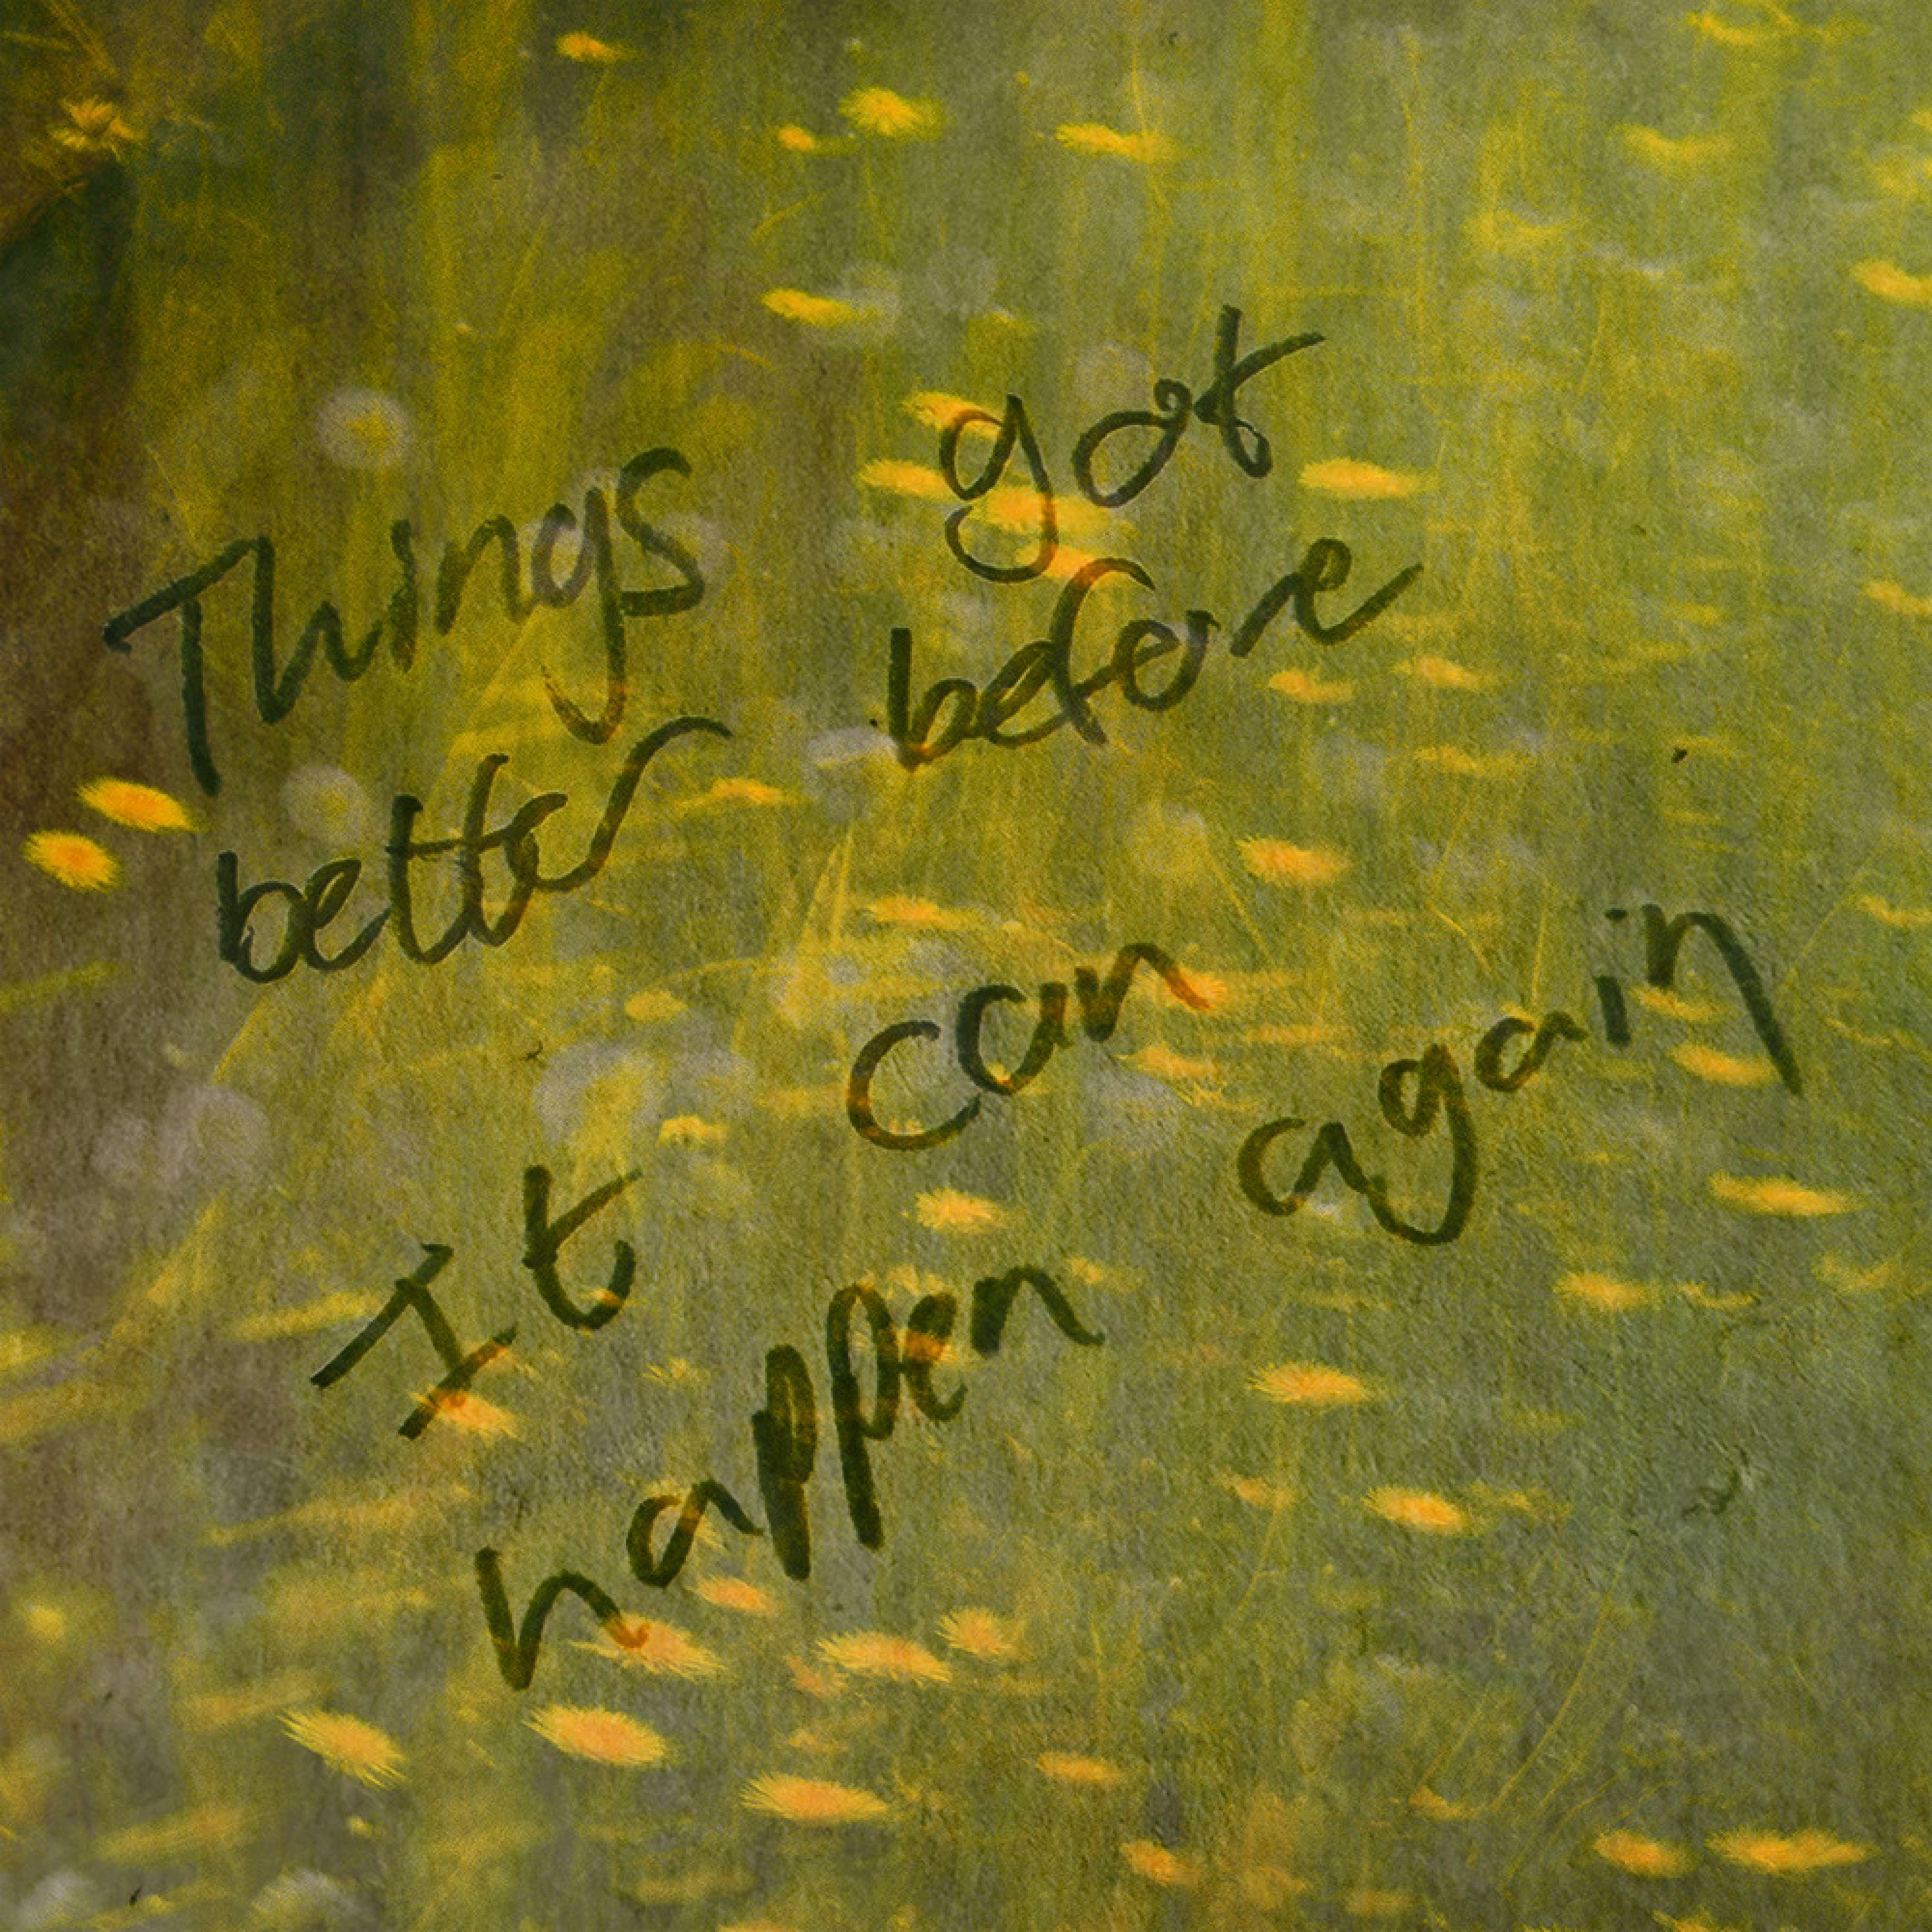 Things got
better before
It can
happen again